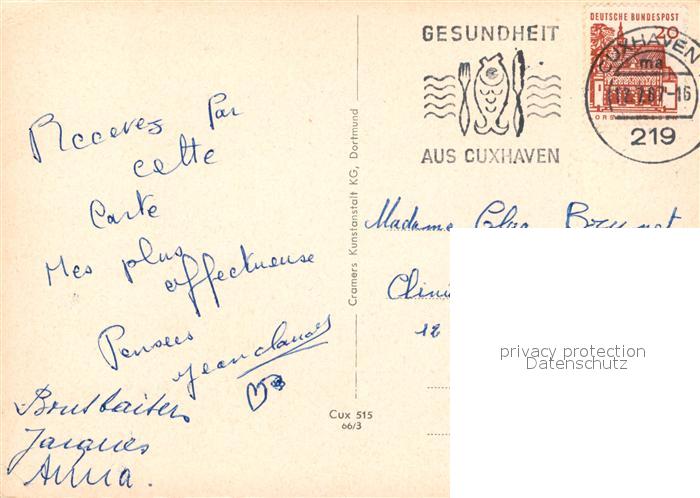 Recevez Par
cette
Carte
Mes plus
affectueuse
Pensees
Jean claude
Jacques
Anna.
Cramers Kunstanstalt KG, Dortmund
Cux 515
66/3
GESUNDHEIT
AUS CUXHAVEN
DEUTSCHE BUNDESPOST
20
CUXHAVEN
ma
12.7.67-16
219
Madame
12
privacy protection
Datenschutz